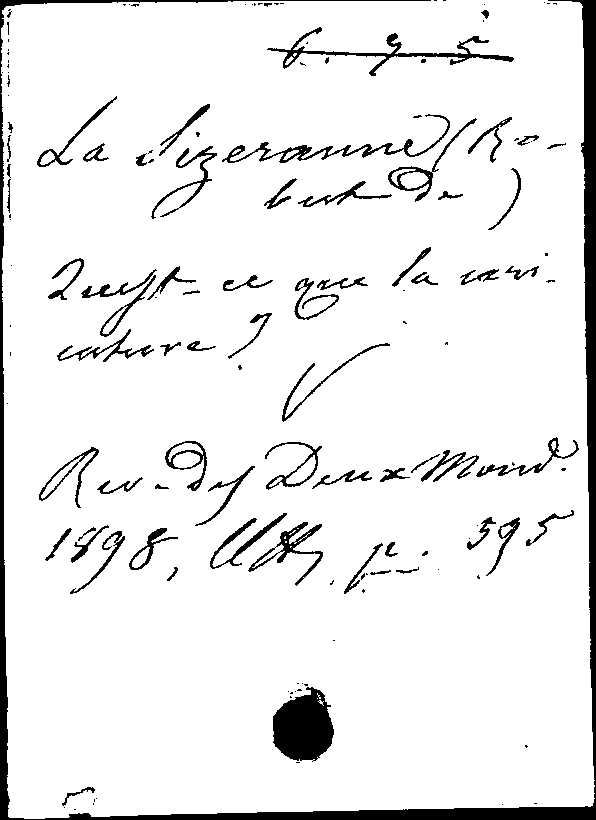 6. 7. 5
La Sizeranne (Ro-
bert de)
Qu'est-ce que la cari-
cature ?
Rev. des Deux Mond.
1898, p. 595